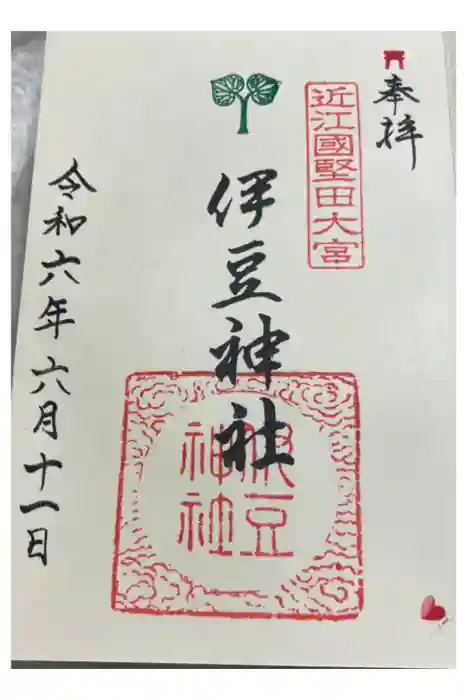 奉拝
近江國堅田大宮
伊豆神社
伊豆
神社
令和六年六月十一日